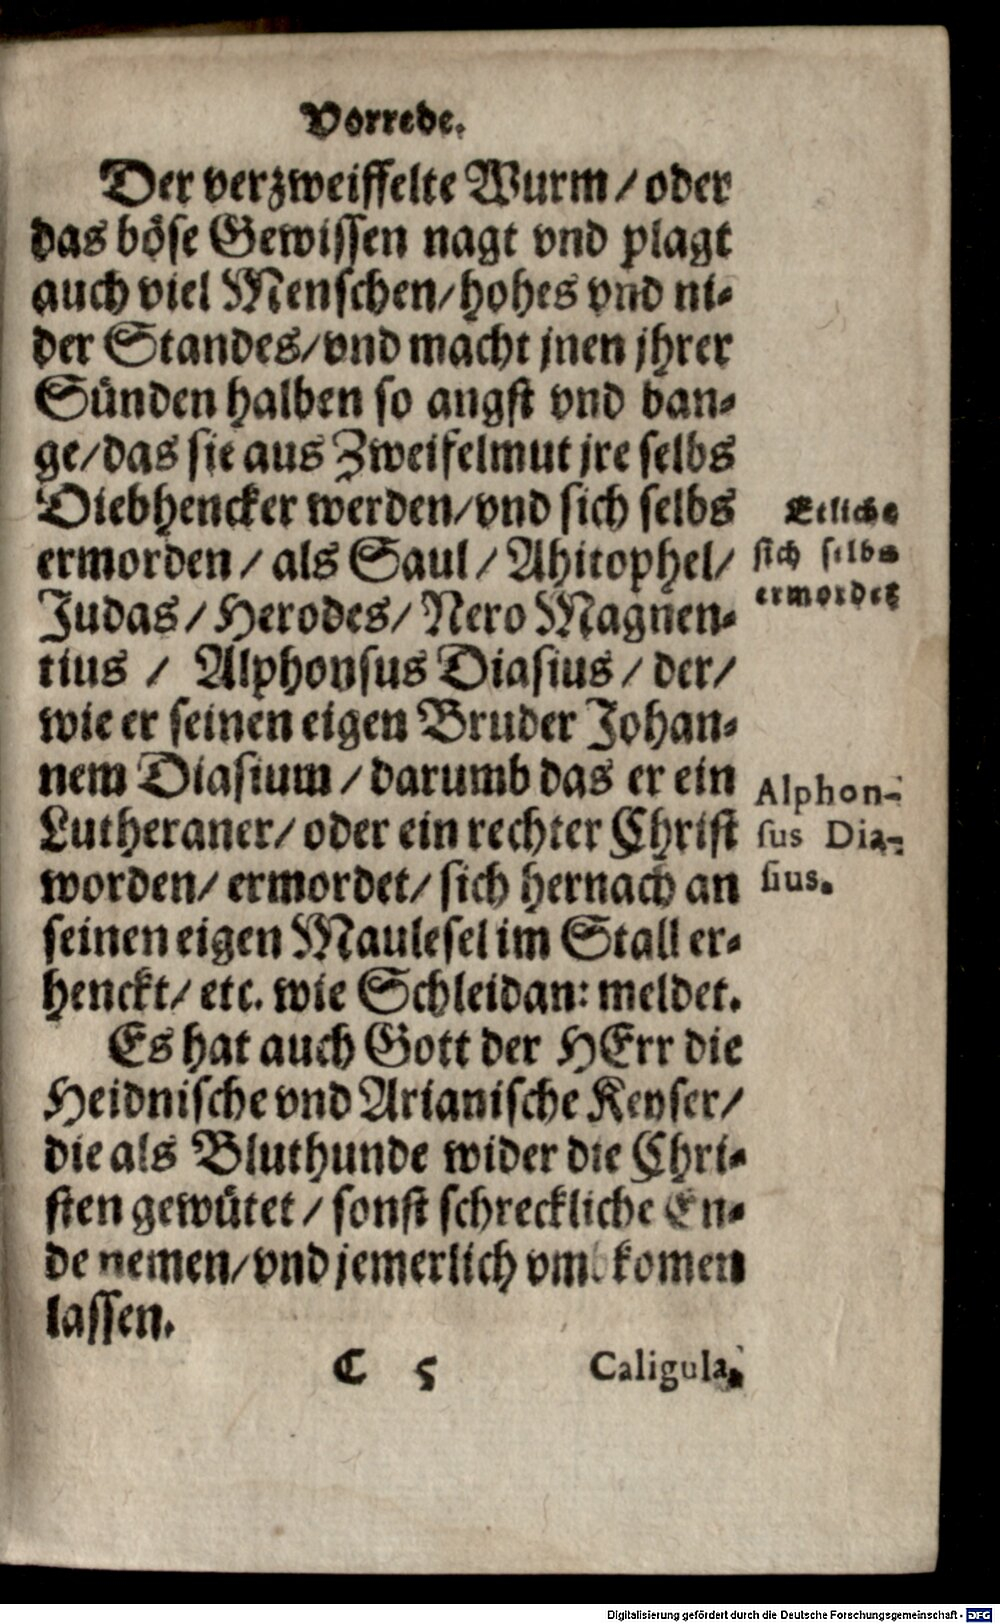 Vorrede.
Der verzweiffelte Wurm / oder
das böse Gewissen nagt vnd plagt
auch viel Menschen / hohes vnd ni-
der Standes / vnd macht jnen jhrer
Sünden halben so angst vnd ban-
ge / das sie aus Zweifelmut jre selbs
Diebhencker werden / vnd sich selbs
ermorden / als Saul / Ahitophel /
Judas / Herodes / Nero Magnen-
tius / Alphonsus Diasius / der /
wie er seinen eigen Bruder Johan-
nem Diasium / darumb das er ein
Lutheraner / oder ein rechter Christ
worden / ermordet / sich hernach an
seinen eigen Maulesel im Stall er-
henckt / etc. wie Schleidan: meldet.
Es hat auch Gott der HErr die
Heidnische vnd Arianische Keyser /
die als Bluthunde wider die Chri-
sten gewütet / sonst schreckliche En-
de nemen / vnd jemerlich vmbkomen
lassen.
Etliche
sich selbs
ermordet
Alphon-
sus Dia-
sius.
C 5 Caligula,
Digitalisierung gefördert durch die Deutsche Forschungsgemeinschaft - DFG